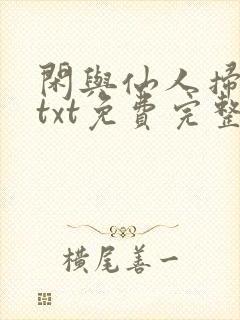 閑與仙人掃
txt免費完整
橫尾善一